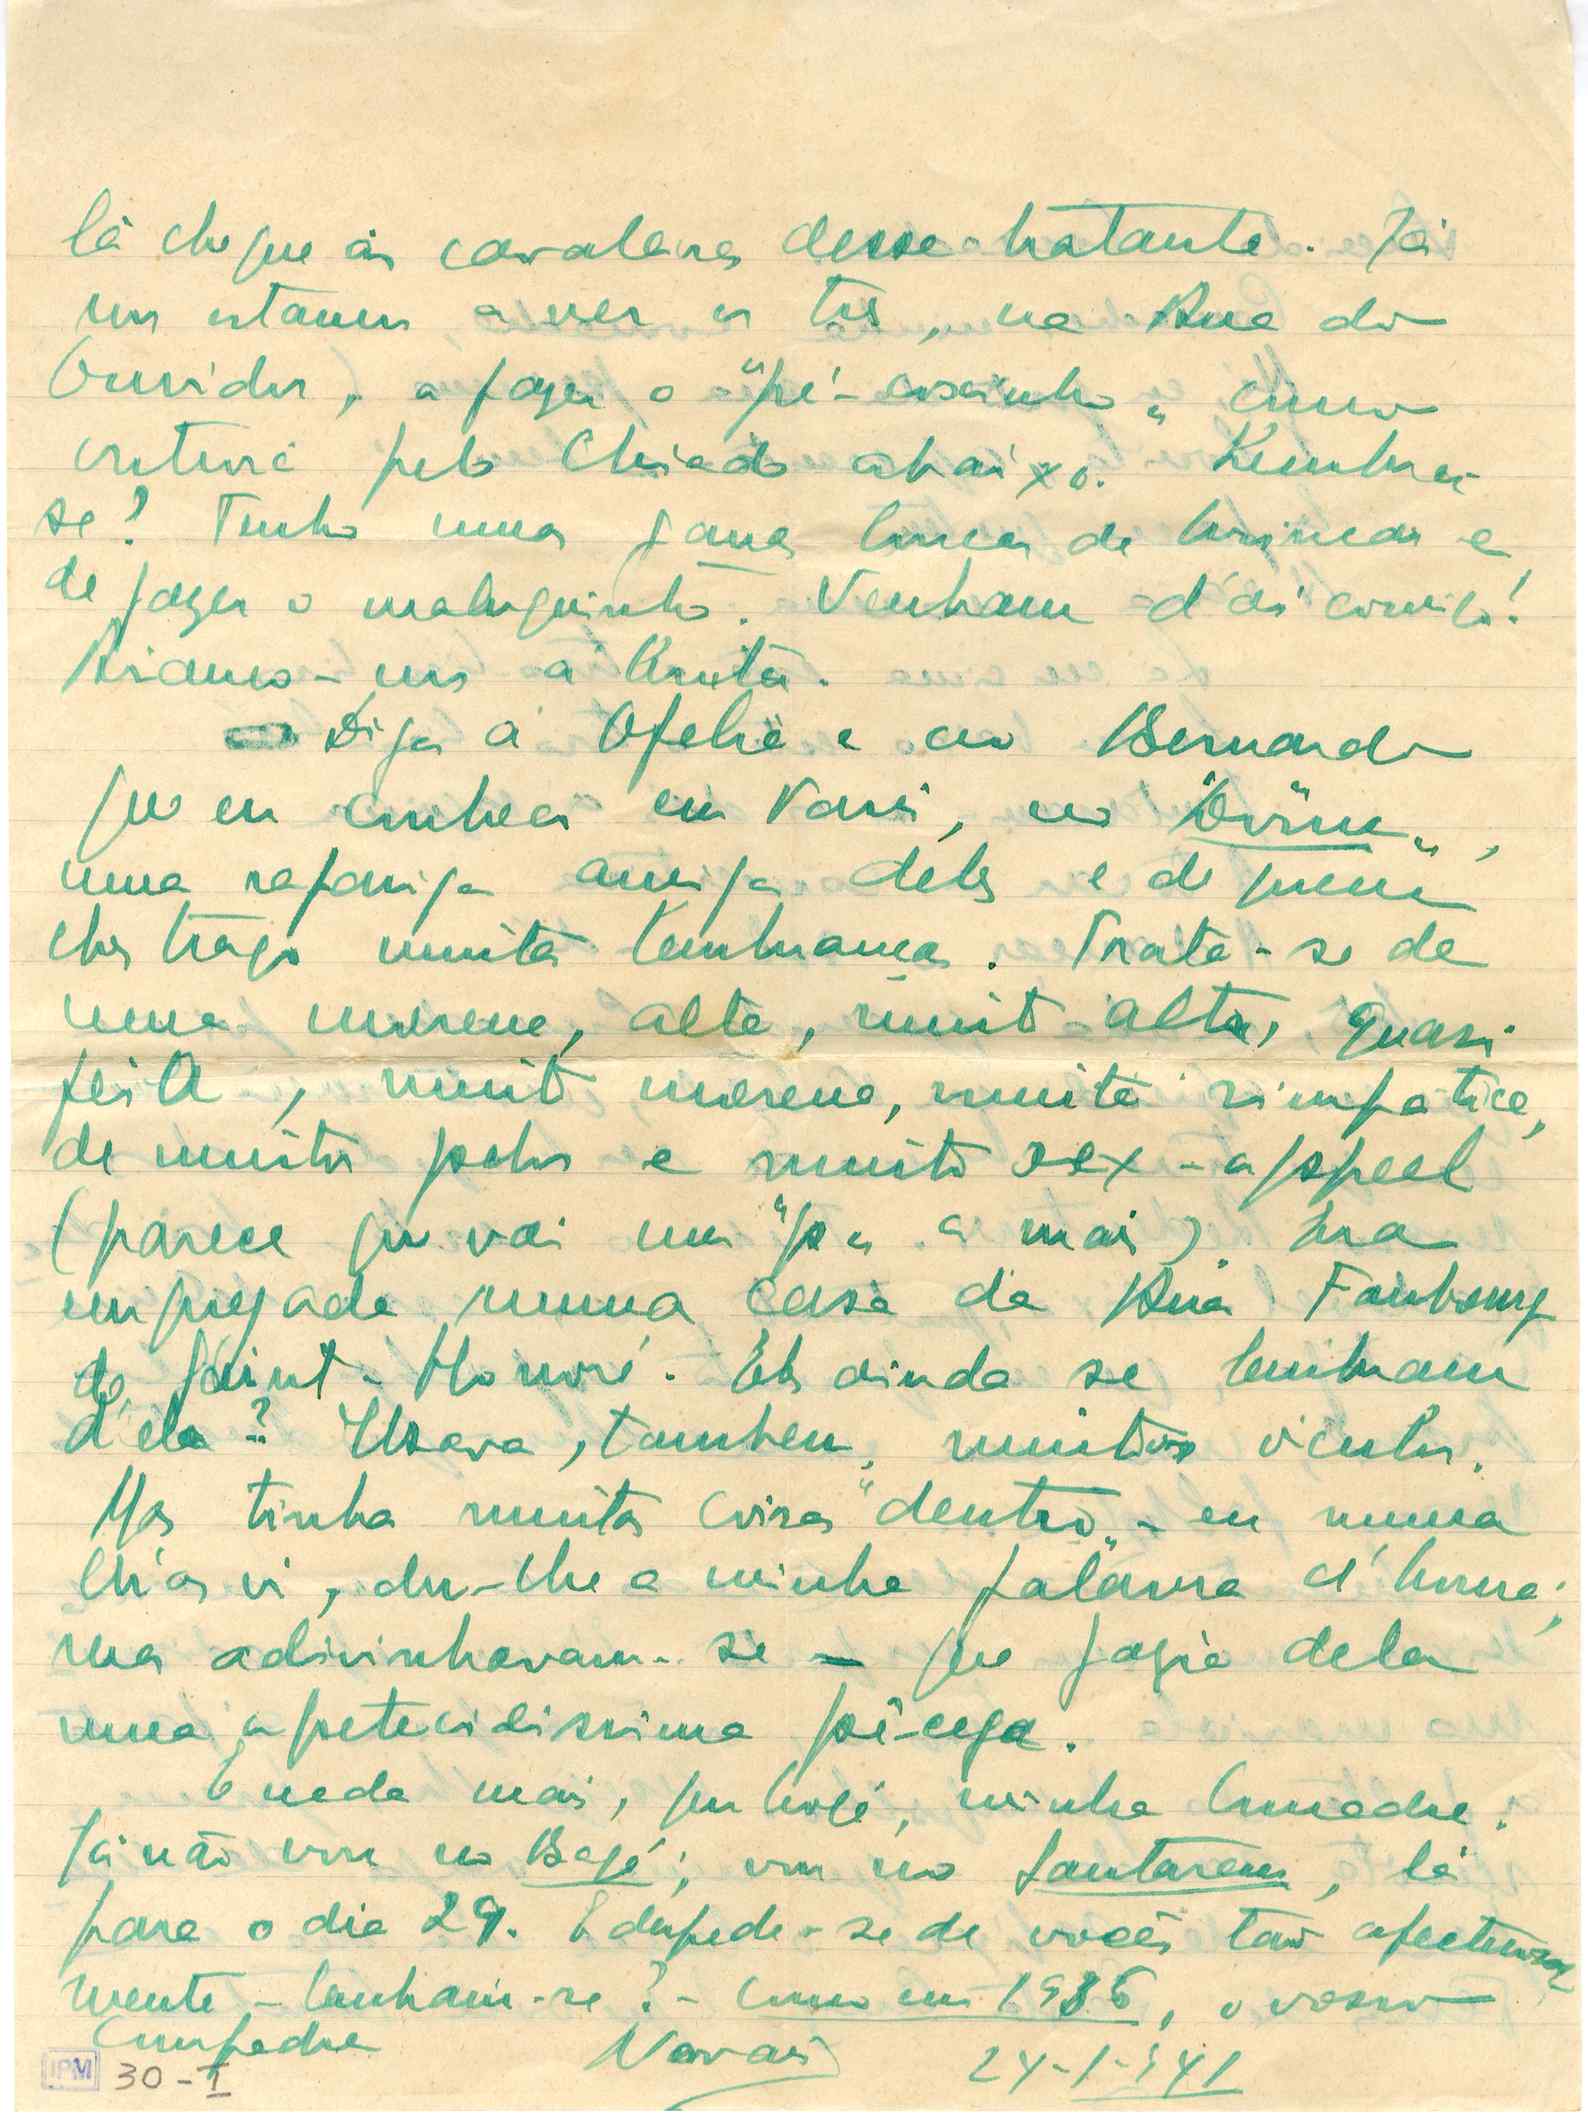 lá chegue ás cavaleiras desse tratante. Já
nos estamos a ver os tres, na Rua do
Ouvidor, a fazer o "pé-coxinho" como
outrora pelo Chiado abaixo. Lembra-
se? Tenho uma gana louca de brincar e
de fazer o maluquinho. Venham d'aí comigo!
Riamo-nos á bruta.
Diga á Ofelia e ao Bernardo
que eu conheci em Paris, no "Dôme",
uma rapariga amiga deles e de quem
lhes trago muitas lembranças. Trata-se de
uma morena, alta, muito alta, quasi
feia, muito morena, muito simpatica,
de muitos pelos e muito sex-appeal
(parece que vai um "p" a mais). Era
empregada numa casa da Rua Faubourg
de Saint-Honoré. Eles ainda se lembram
d'ela? Usava, tambem, muitos oculos.
Mas tinha muitas coisas "dentro" - eu nunca
lh'as vi, dou-lhe a minha palavra d'honra;
mas adivinhavam-se - que fazia dela
uma apetecidissima pê-cega.
E nada mais, por hoje, minha Comadre.
Já não vou no Bagé; vou no Santarem, lá
para o dia 29. E despede-se de vocês tão afectuosa-
mente - lembram-se? - como em 1936, o vosso
Compadre
Novais
24-1-941
IPM 30-I